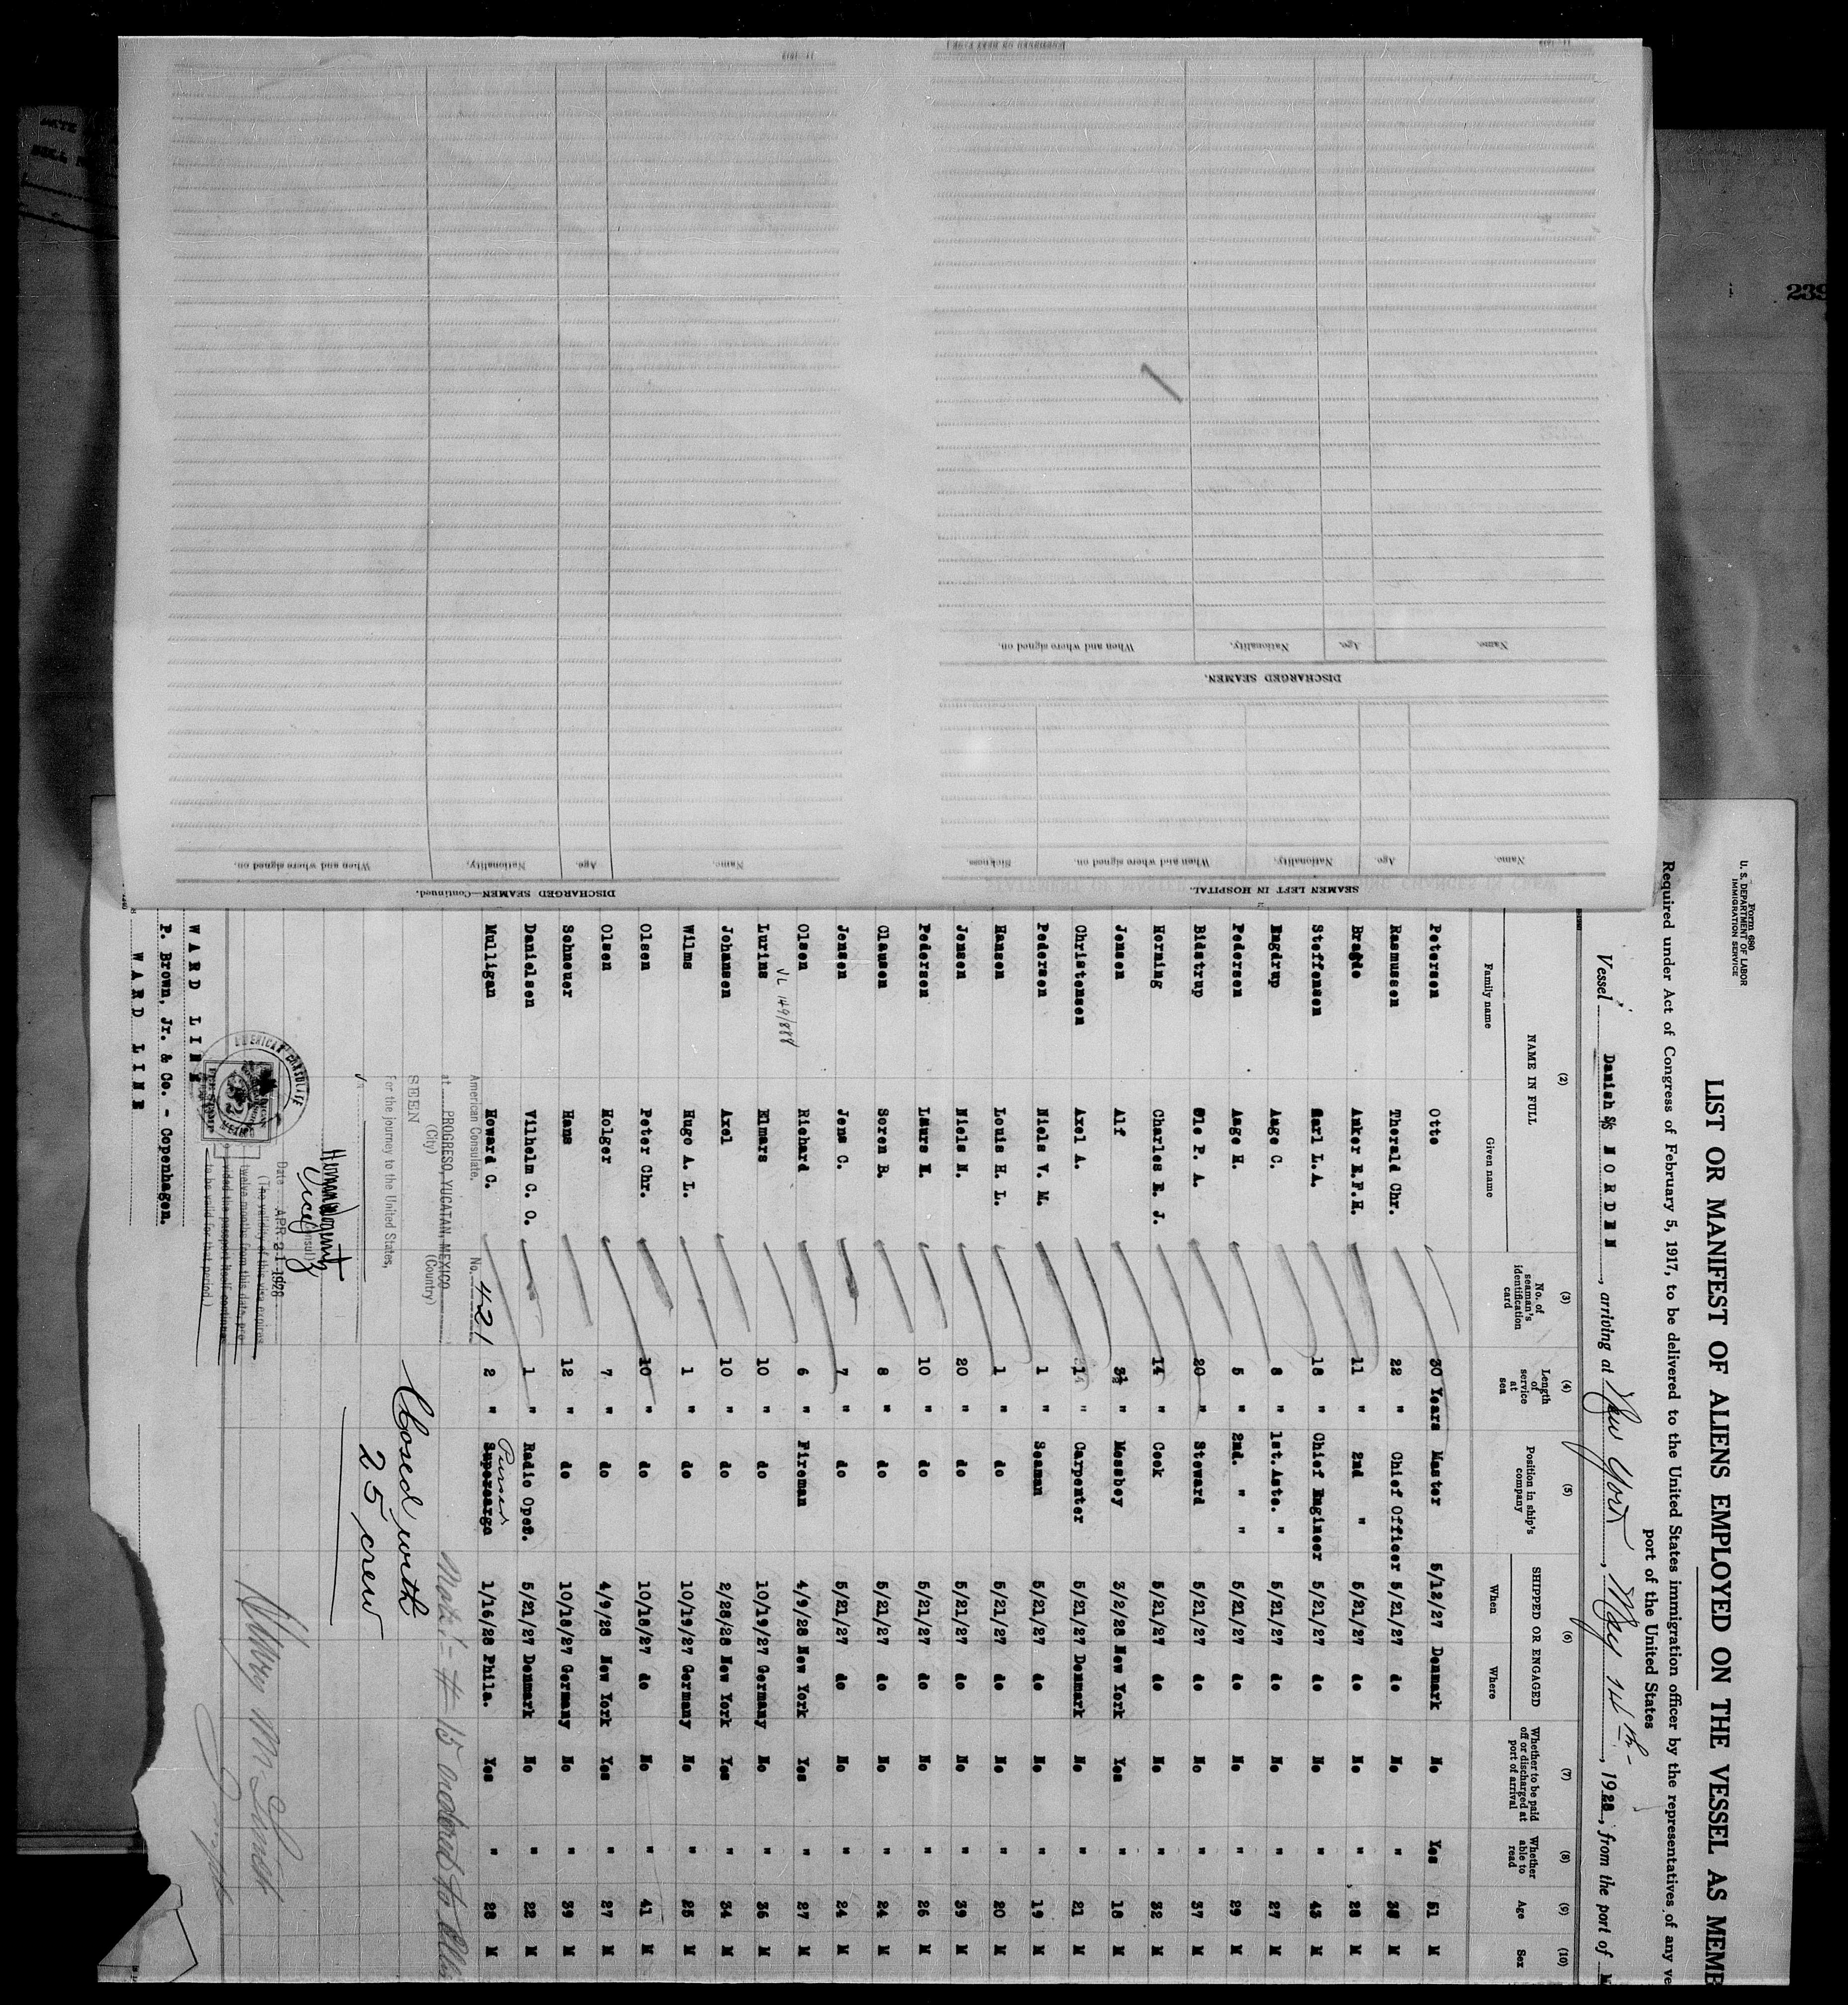 239
Form 680
U. S. DEPARTMENT OF LABOR
IMMIGRATION SERVICE
LIST OR MANIFEST OF ALIENS EMPLOYED ON THE VESSEL AS MEMB
Required under Act of Congress of February 5, 1917, to be delivered to the United States immigration officer by the representatives of any ve
port of the United States
Vessel Danish S/S NORDEN, arriving at New York, May 14th, 1928, from the port of
(2) (3) (4) (5) (6) (7) (8) (9) (10)
NAME IN FULL No. of seaman's identification card Length of service at sea Position in ship's company SHIPPED OR ENGAGED Whether to be paid off or discharged at port of arrival Whether able to read Age Sex
Family name Given name When Where
Petersen Otto 30 Years Master 5/12/27 Denmark No Yes 51 M
Rasmussen Thorald Chr. 22 " Chief Officer 5/21/27 do No " M
Bragde Anker E.F.H. 11 " 2nd " 5/21/27 do No " 28 M
Steffensen Karl L. A. 18 " Chief Engineer 5/21/27 do No " 43 M
Engdrup Aage C. 8 " 1st. Aste. " 5/21/27 do No " 27 M
Pedersen Aage H. 5 " 2nd. " " 5/21/27 do No " 29 M
Bidstrup Ole P. A. 20 " Steward 5/21/27 do No " 37 M
Horning Charles E. J. 14 " Cook 5/21/27 do No " 32 M
Jensen Alf 3½ " Messboy 3/2/28 New York Yes " 18 M
Christensen Axel A. " Carpenter 5/21/27 Denmark No " 21 M
Pedersen Niels V. M. 1 " Seaman 5/21/27 do No " 19 M
Hansen Louis H. L. 1 " do 5/21/27 do No " 20 M
Jensen Niels N. 20 " do 5/21/27 do No " 39 M
Pedersen Laurs E. 10 " do 5/21/27 do No " 26 M
Clausen Soren B. 8 " do 5/21/27 do No " 24 M
Jensen Jens C. 7 " do 5/21/27 do No " 24 M
Olsen Richard 6 " Fireman 4/9/28 New York Yes " 27 M
VL 149/888
Lurins Elmars 10 " do 10/19/27 Germany No " 36 M
Johansen Axel 10 " do 2/28/28 New York Yes " 34 M
Wilms Hugo A. L. 1 " do 10/19/27 Germany No " 25 M
Olsen Peter Chr. 10 " do 10/18/27 do No " 41 M
Olsen Holger 7 " do 4/9/28 New York Yes " 27 M
Schneuer Hans 12 " do 10/18/27 Germany No " 39 M
Danielsen Vilhelm C. O. 1 " Radio Oper. 5/21/27 Denmark No " 22 M
Purser
Mulligan Howard C. 2 " Supercargo 1/16/28 Phila. Yes " 28 M
American Consulate. No. 421
at PROGRESO, YUCATAN, MEXICO
(City) (Country)
SEEN
For the journey to the United States,
Vice Consul
Date APR 21 1928
(The validity of this visa expires
twelve months from this date pro-
vided the passport itself continues
to be valid for that period.)
AMERICAN CONSULATE
Closed with
25 crew
WARD LINE
P. Brown, Jr. & Co. - Copenhagen.
WARD LINE
SEAMEN LEFT IN HOSPITAL.
Name. Age. Nationality. When and where signed on. Sickness.
DISCHARGED SEAMEN.
Name. Age. Nationality. When and where signed on.
DISCHARGED SEAMEN—Continued.
Name. Age. Nationality. When and where signed on.